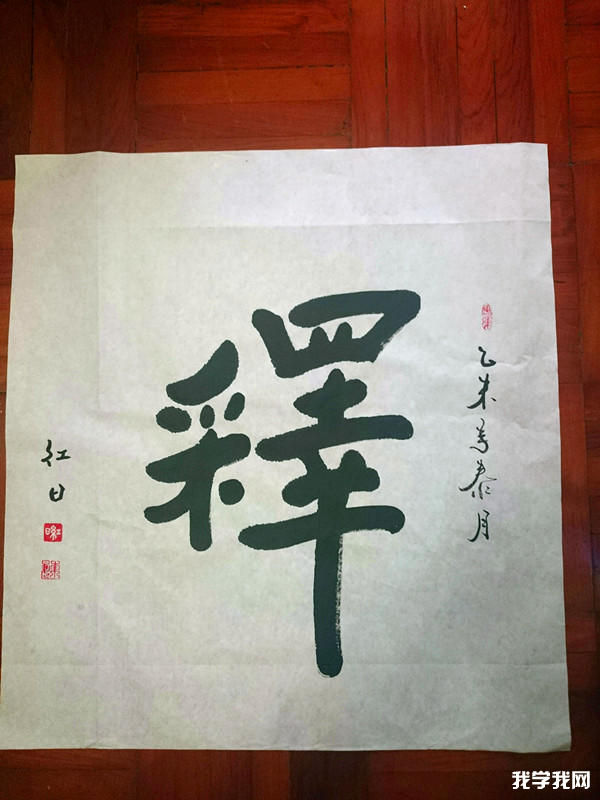 乙未年泰月
釋
红日
我学我网